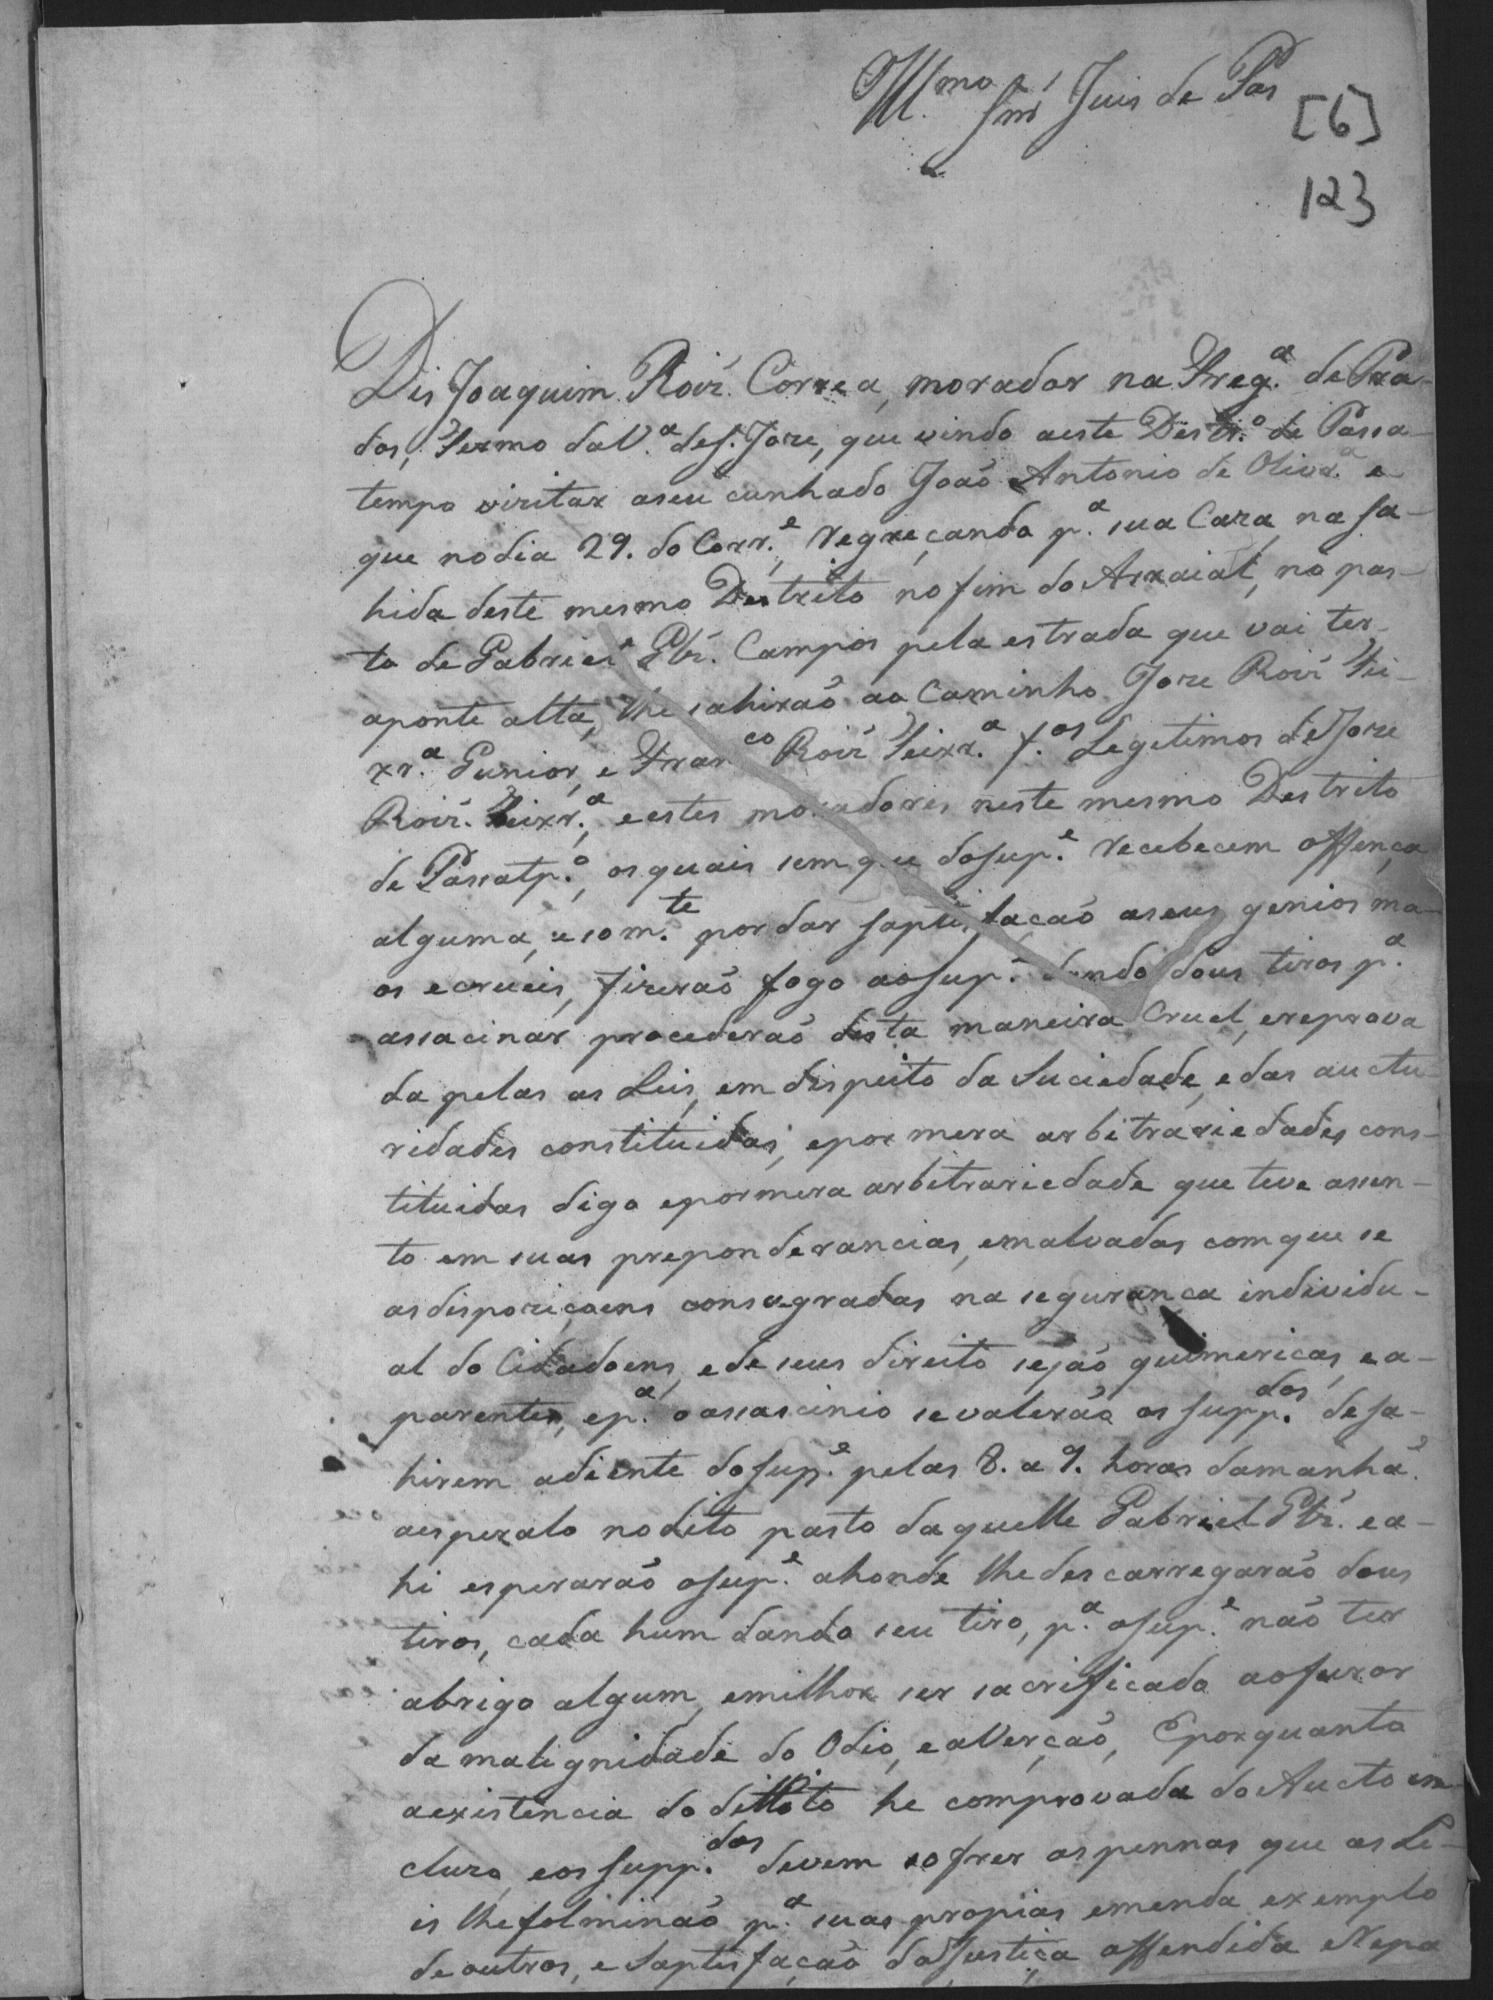 Ill.mo Snr' Juis de Pas
[6]
123
Dis Joaquim Roiz'. Correa, morador na Freg.a de Pra-
dos, Termo da V.a de S. Joze, que vindo aeste Destr.o de Passa-
tempo vizitar aseu cunhado João Antonio de Olivr.a e
que nodia 29. do Corr.e, regreçando p.a sua Caza, na sa-
hida deste mesmo Destrito no fim do Arraial, no pas-
to de Gabriel Glz'. Campos pela estrada que vai ter
aponte alta, lhe sahirão ao Caminho Joze Roiz' Tei-
xr.a Junior, e Fran.co Roiz' Teixr.a f.os Legetimos de Joze
Roiz'. Teixr.a, eestes moradores neste mesmo Destrito
de Passatp.o, os quais sem que dosup.e recebecem offença
alguma, esom.te por dar saptisfação aseus genios ma-
os ecrueis, fizerão fogo aosup.e dando dous tiros p.a
assacinar procederão desta maneira Cruel, ereprova
da pelas as Leis, em dispeito da Suciedade, edas auctu-
ridades constituidas, epor mera arbitrariedades cons-
tituidas digo epormera arbitrariedade que teve assen-
to em suas preponderancias, emalvadas comque se
asdispoziçoens consagradas na segurança individu-
al do Cidadoens, ede seus direito sejão quimericas, ea-
parentes, ep.a oassascinio sevalerão os supp.dos desa-
hirem adiente dosup.e pelas 8. a 9. horas damanhã.
aesperalo nodito pasto daquelle Gabriel Glz'. ea-
hi esperarão osup.e ahonde lhedescarregarão dous
tiros, cada hum dando seu tiro, p.a osup.e não ter
abrigo algum, emilhor ser sacrificado aofuror
da malignidade do Odio, eaVerção, Eporquanto
aexistencia do dillito he comprovada do Aucto in-
cluzo, eos supp.dos devem sofrer aspennas que as Le-
is lhefolminão p.a suas propias emenda exemplo
deoutros, e Saptisfação daJustiça offendida eNepa